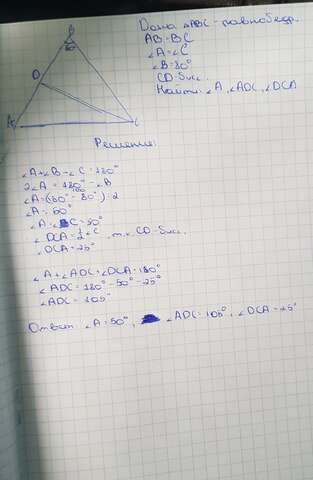 Дано △ABC - равнобедр.
AB=BC
∠A=∠C
∠B=80°
CD-бисс.
Найти: ∠A, ∠ADC, ∠DCA
B
80°
D
A
C
Решение:
∠A+∠B+∠C=180°
2∠A=180°-∠B
∠A=(180°-80°):2
∠A=50°
∠A=∠C=50°
∠DCA=½∠C, т.к. CD-бисс.
∠DCA=25°
∠A+∠ADC+∠DCA=180°
∠ADC=180°-50°-25°
∠ADC=105°
Ответ: ∠A=50°, ∠ADC=105°, ∠DCA=25°